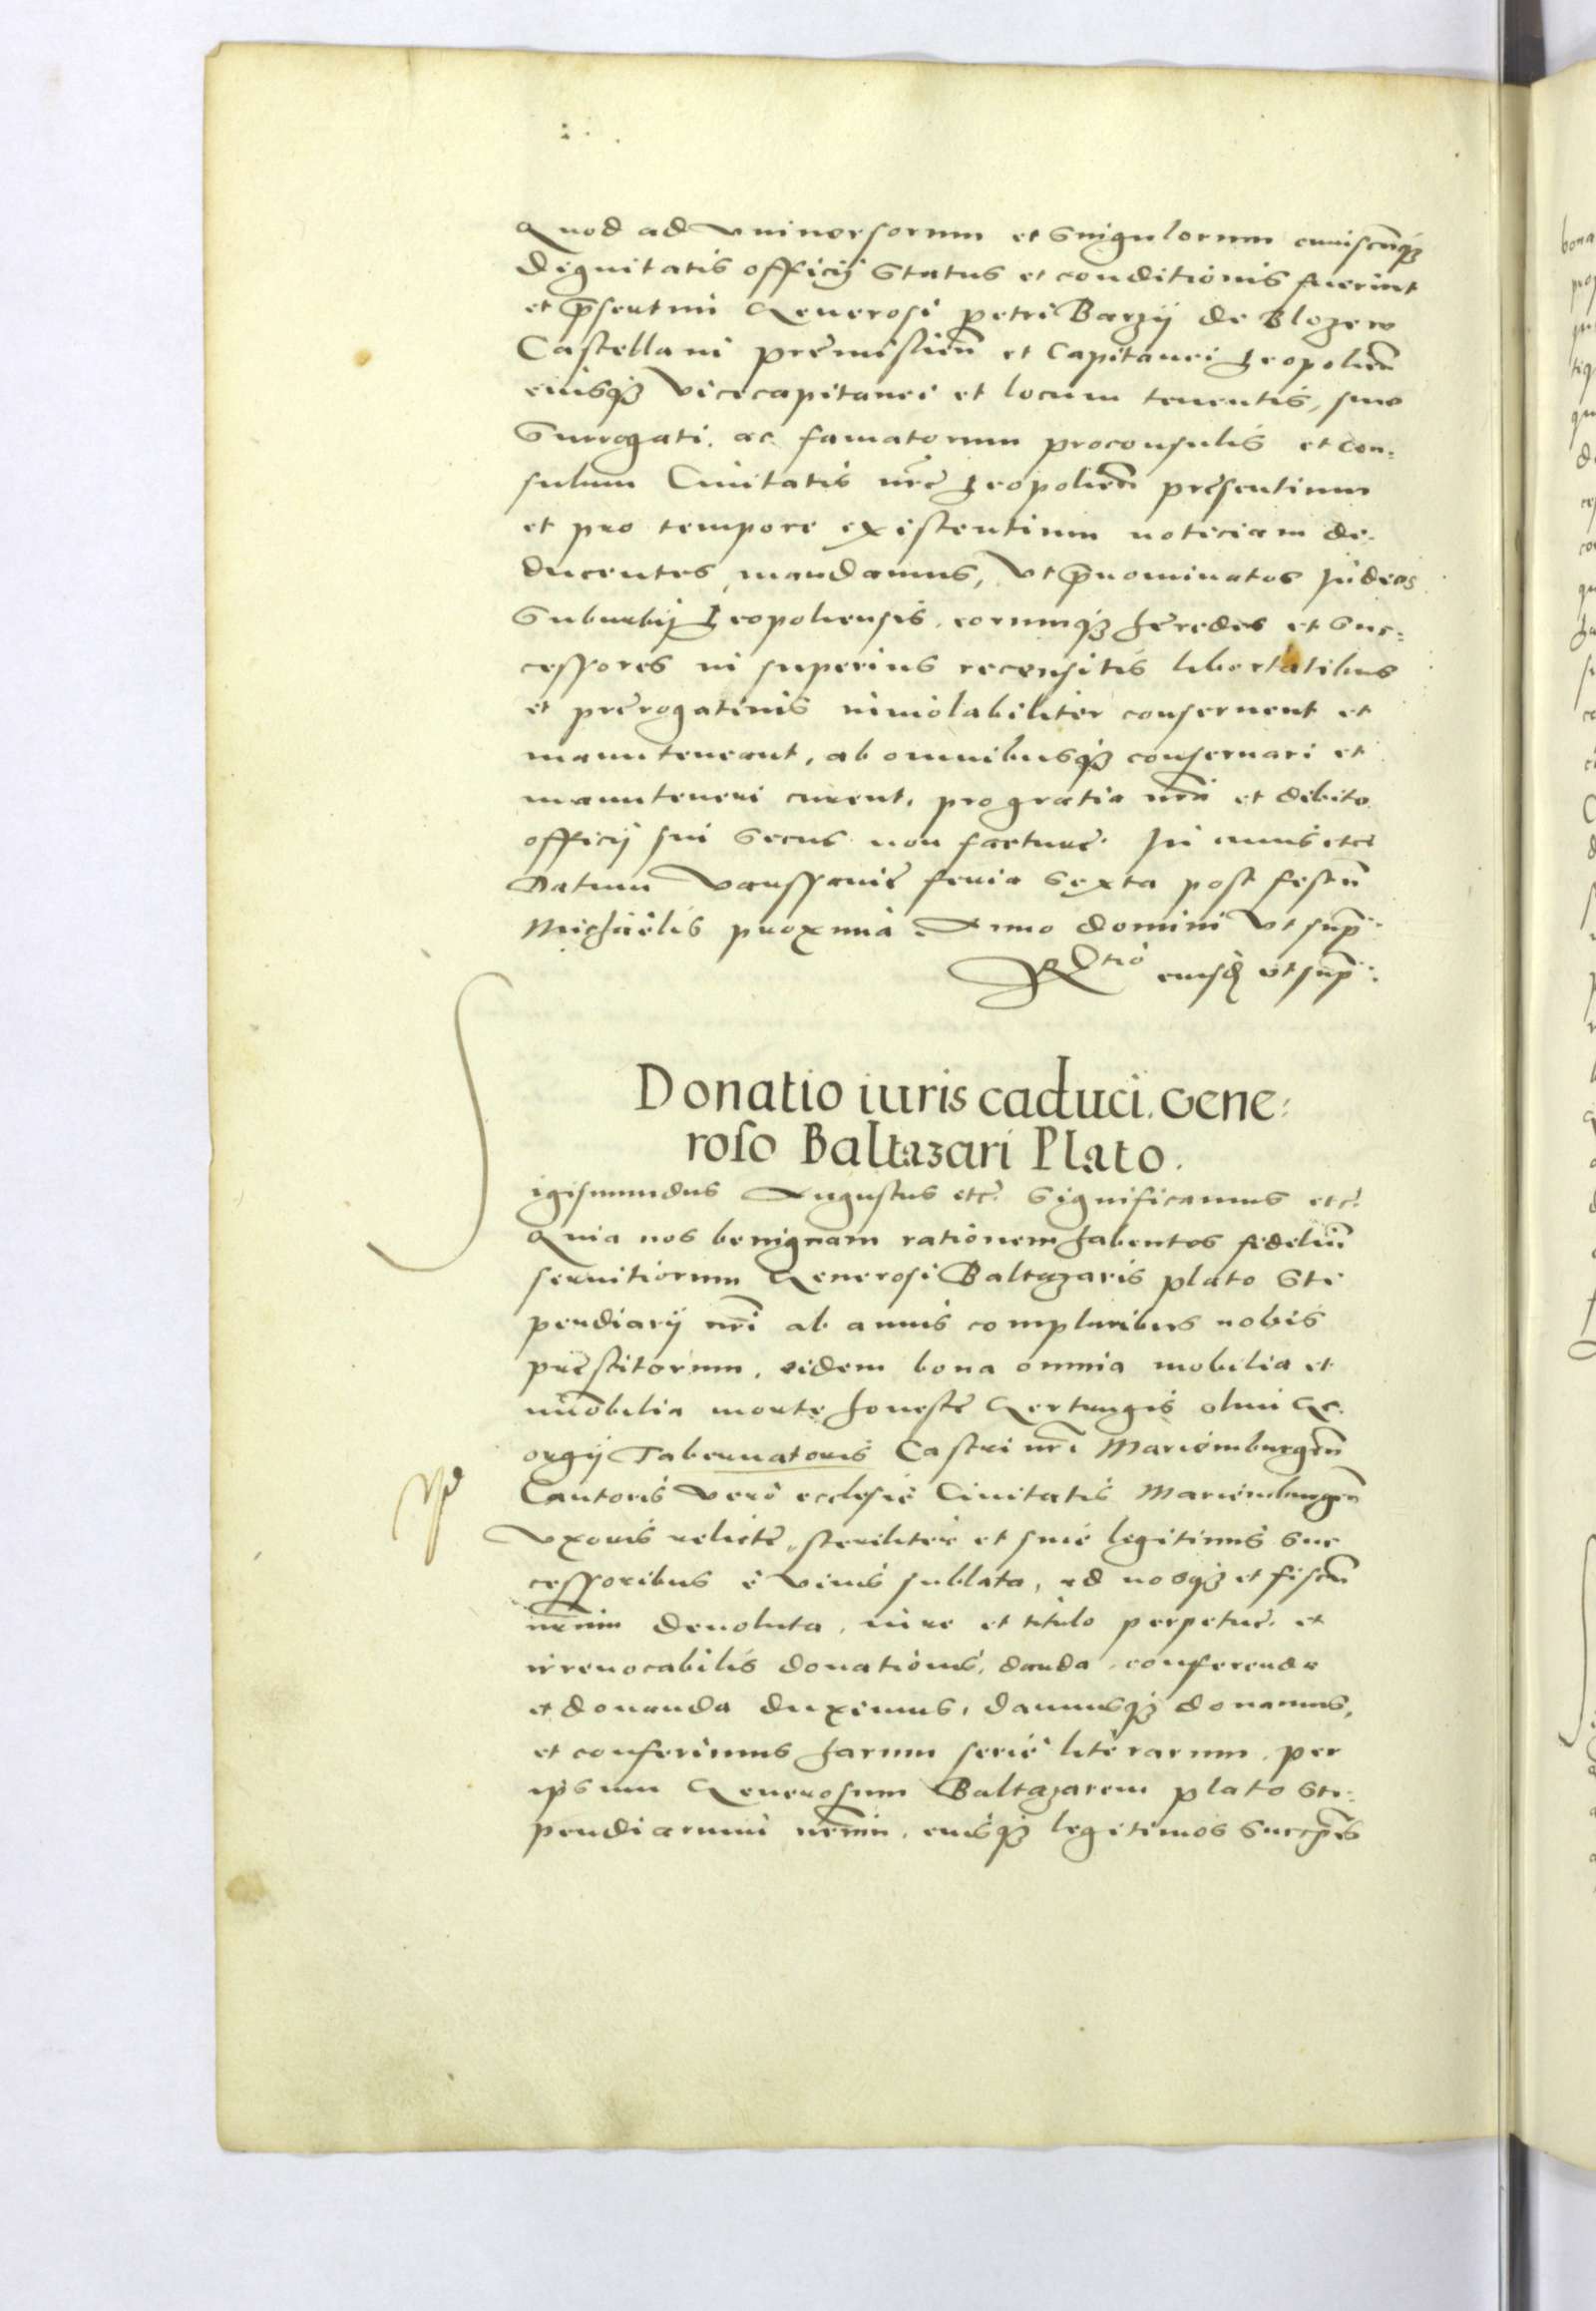 Quod ad vniuersorum et singulorum cuiuscunqȝ
dignitatis officij status et conditionis fuerint
et p̄sertim Generosi petri Barzij de Blozew
Castellani premislien̄ et Capitanei Leopolien̄
eiusqȝ vicecapitanei et locum tenentis, siue
surrogati. ac famatorum proconsulis et Con:
sulum Ciuitatis nrē Leopolien̄ presentium
et pro tempore existentium noticiam de:
ducentes, mandamus, vt p̄nominatos Iudeos
suburbij Leopoliensis. eorumqȝ heredes et suc:
cessores in superius recensitis libertatibus
et prerogatiuis inuiolabiliter conseruent et
manuteneant, ab omnibusqȝ conseruari et
manuteneri curent, pro gratia nrā et debito
officij sui secus non facture. In cuius etc
Datum Varssauie feria sexta post festū
Michaelis proxima. Anno domini vt sup̄:
Rtio eiusd vt sup̄:
Donatio iuris caduci. Gene:
roso Baltazari Plato.
Sigismundus Augustus etc. Significamus etc.
Quia nos benignam rationem habentes fideliū
seruitiorum Generosi Baltazaris plato Sti
pendiarij nrī ab annis compluribus nobis
prestitorum, eidem bona omnia mobilia et
im̄obilia morte honeste Gertrugis olim Ge:
orgij Tabernatoris Castri nrī Mariemburgen̄
Cantoris vero ecclesie Ciuitatis Mariemburgen̄
Vxoris relicte, steriliter et sine legitimis suc
cessoribus e viuis sublata, ad nosqȝ et fiscū
nr̄um deuoluta, iure et titulo perpetue et
irreuocabilis donationis, danda, conferenda
et donanda duximus, damusqȝ donamus,
et conferimus harum serie literarum. per
ipsum Generosum Baltazarem plato Sti:
pendiarium nr̄um, eiusqȝ legitimos succr̄es